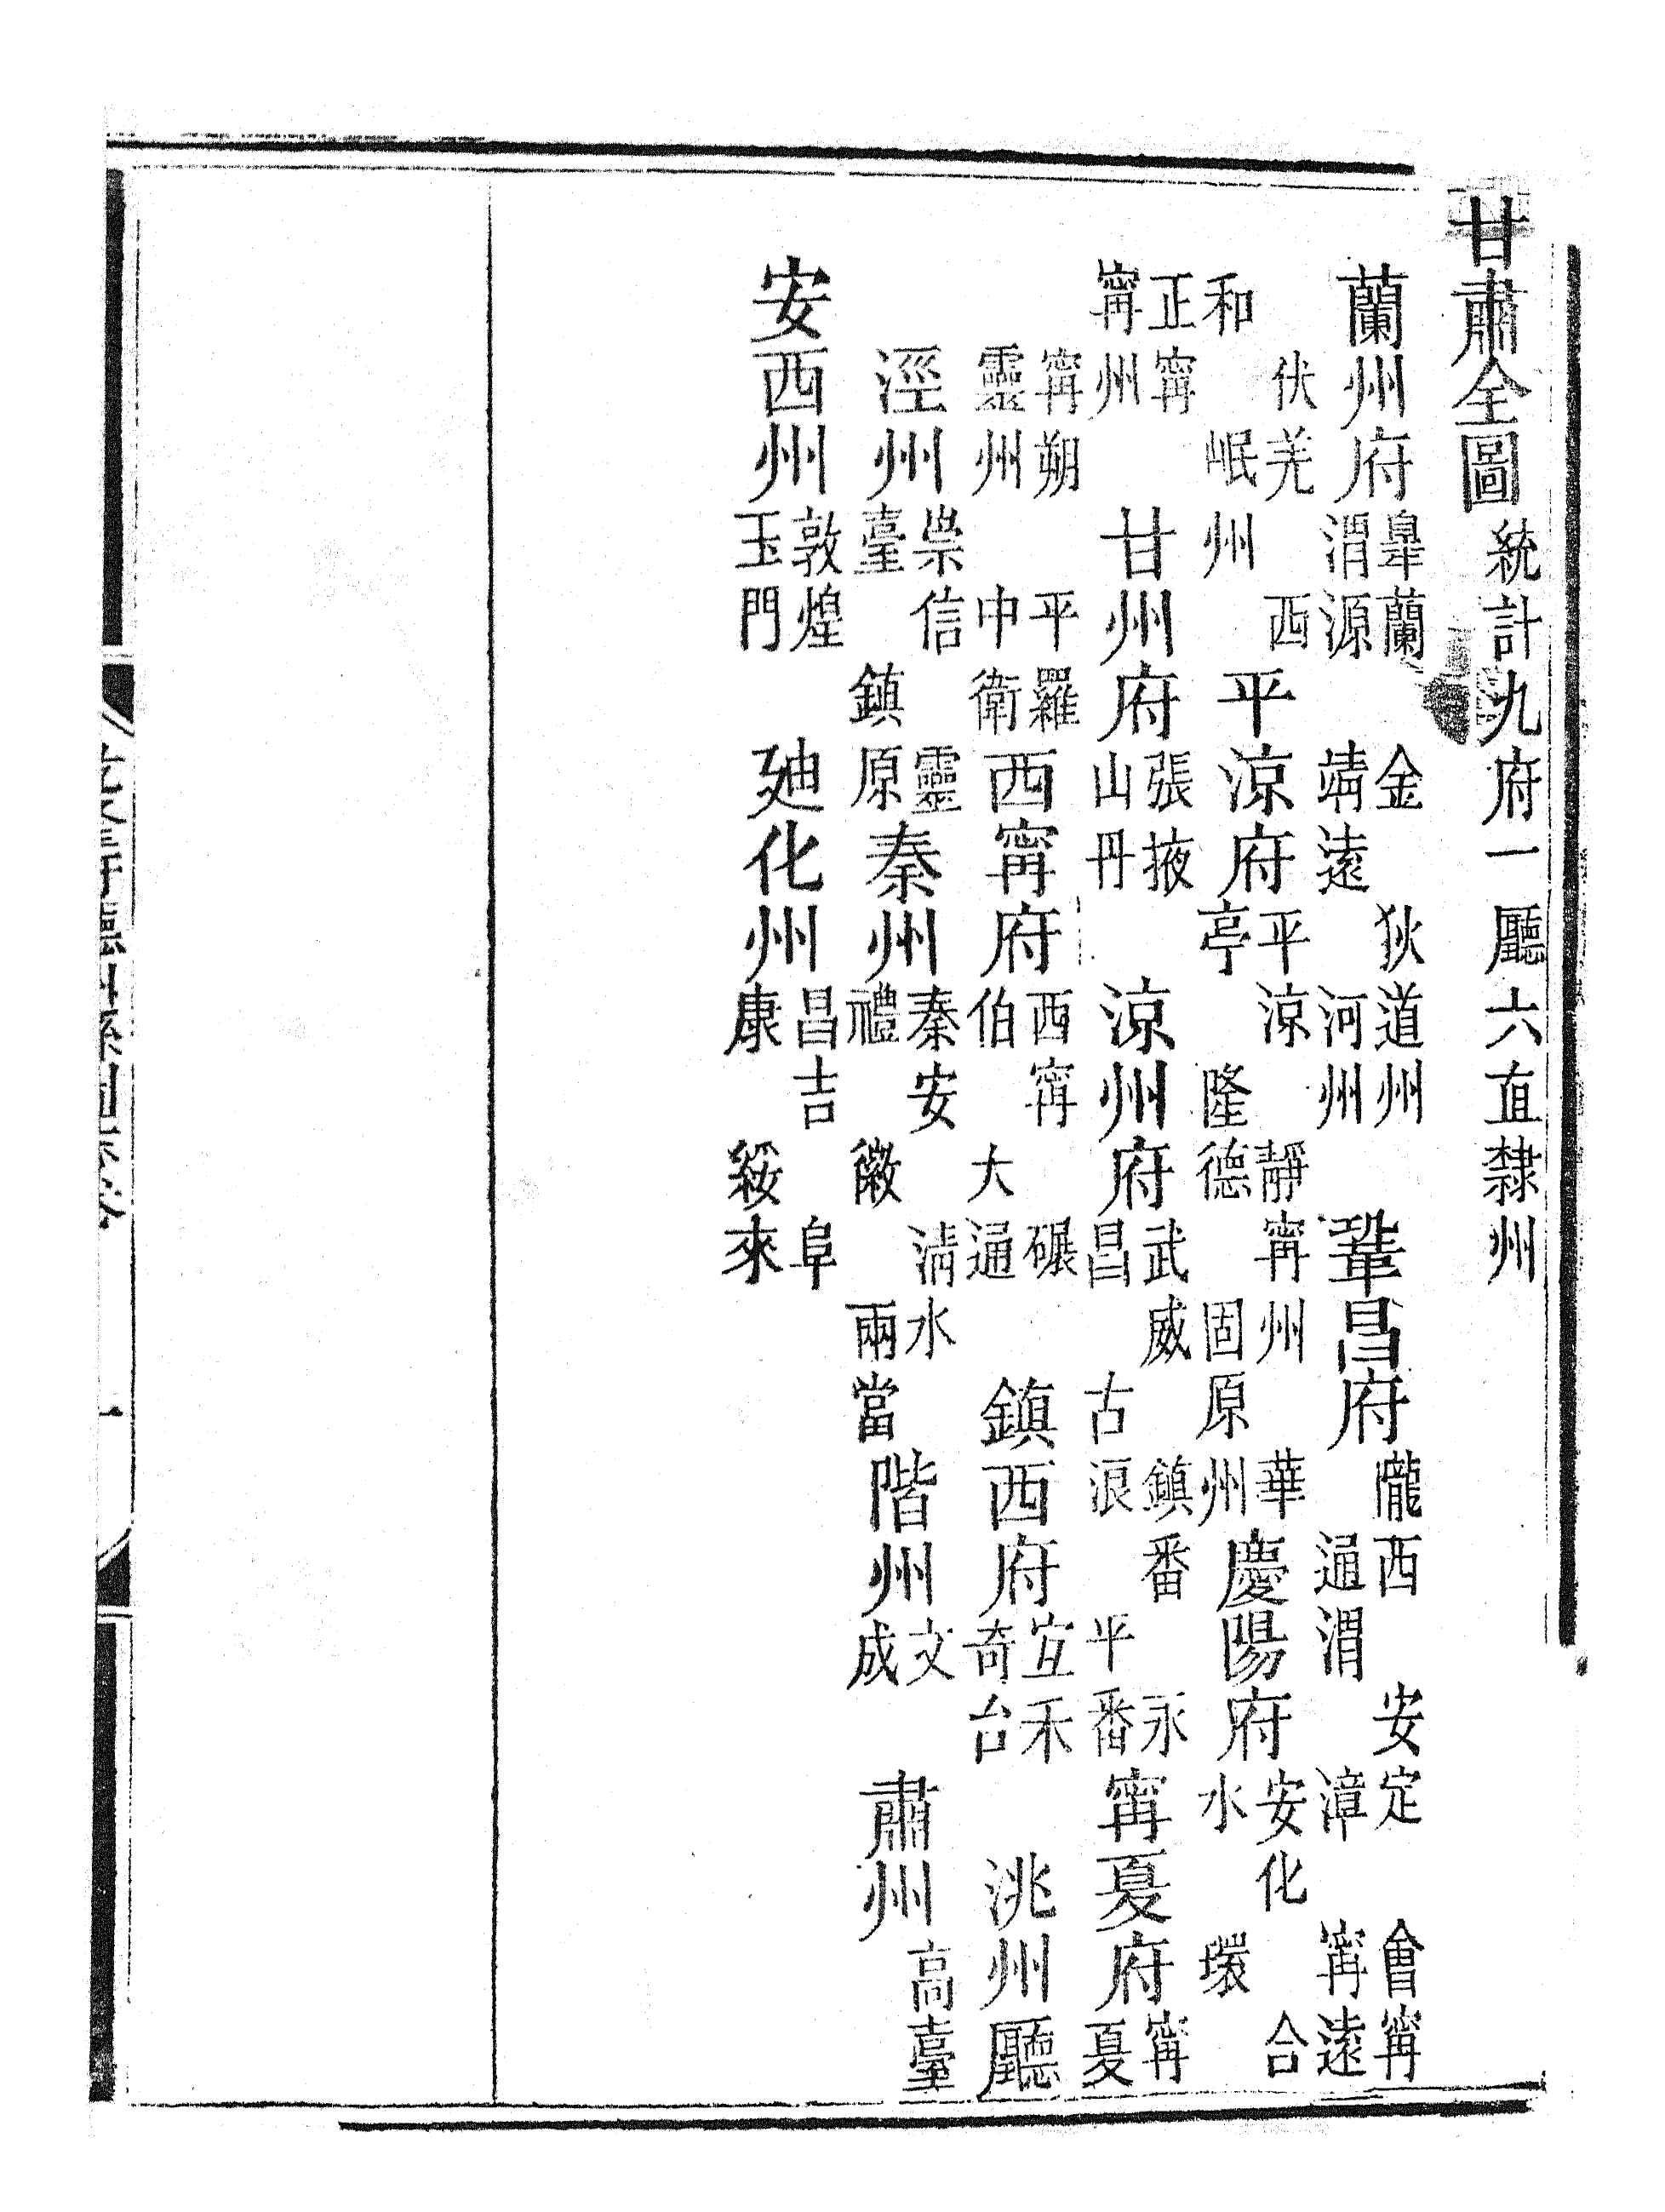 甘肅全圖 統計九府一廳六直隸州
蘭州府 皐蘭 金 狄道州 渭源 靖遠 河州 鞏昌府 隴西 安定 會甯 通渭 漳 甯遠
伏羌 西 和 岷州 平涼府 平涼 靜甯州 華 亭 隆德 固原州 慶陽府 安化 合 水 環
正甯 甯州 甘州府 張掖 山丹 涼州府 武威 鎮番 永 昌 古浪 平番 甯夏府 甯 夏
甯朔 平羅 靈州 中衛 西甯府 西甯 碾 伯 大通 鎮西府 宜禾 奇台 洮州廳
涇州 崇信 靈 臺 鎮原 秦州 秦安 清水 禮 徽 兩當 階州 文 成 肅州 高臺
安西州 敦煌 玉門 迪化州 昌吉 阜 康 綏來
一